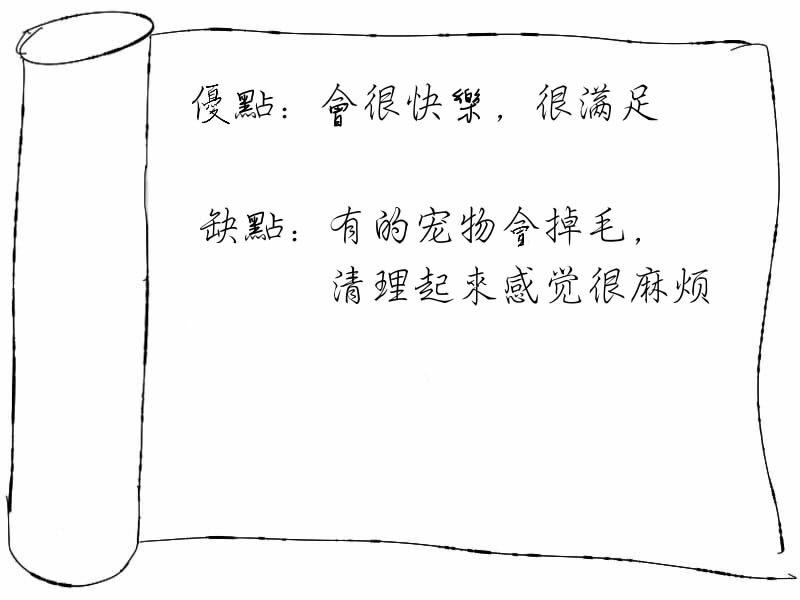 優點：會很快樂，很满足
缺點：有的宠物會掉毛，
清理起來感觉很麻烦